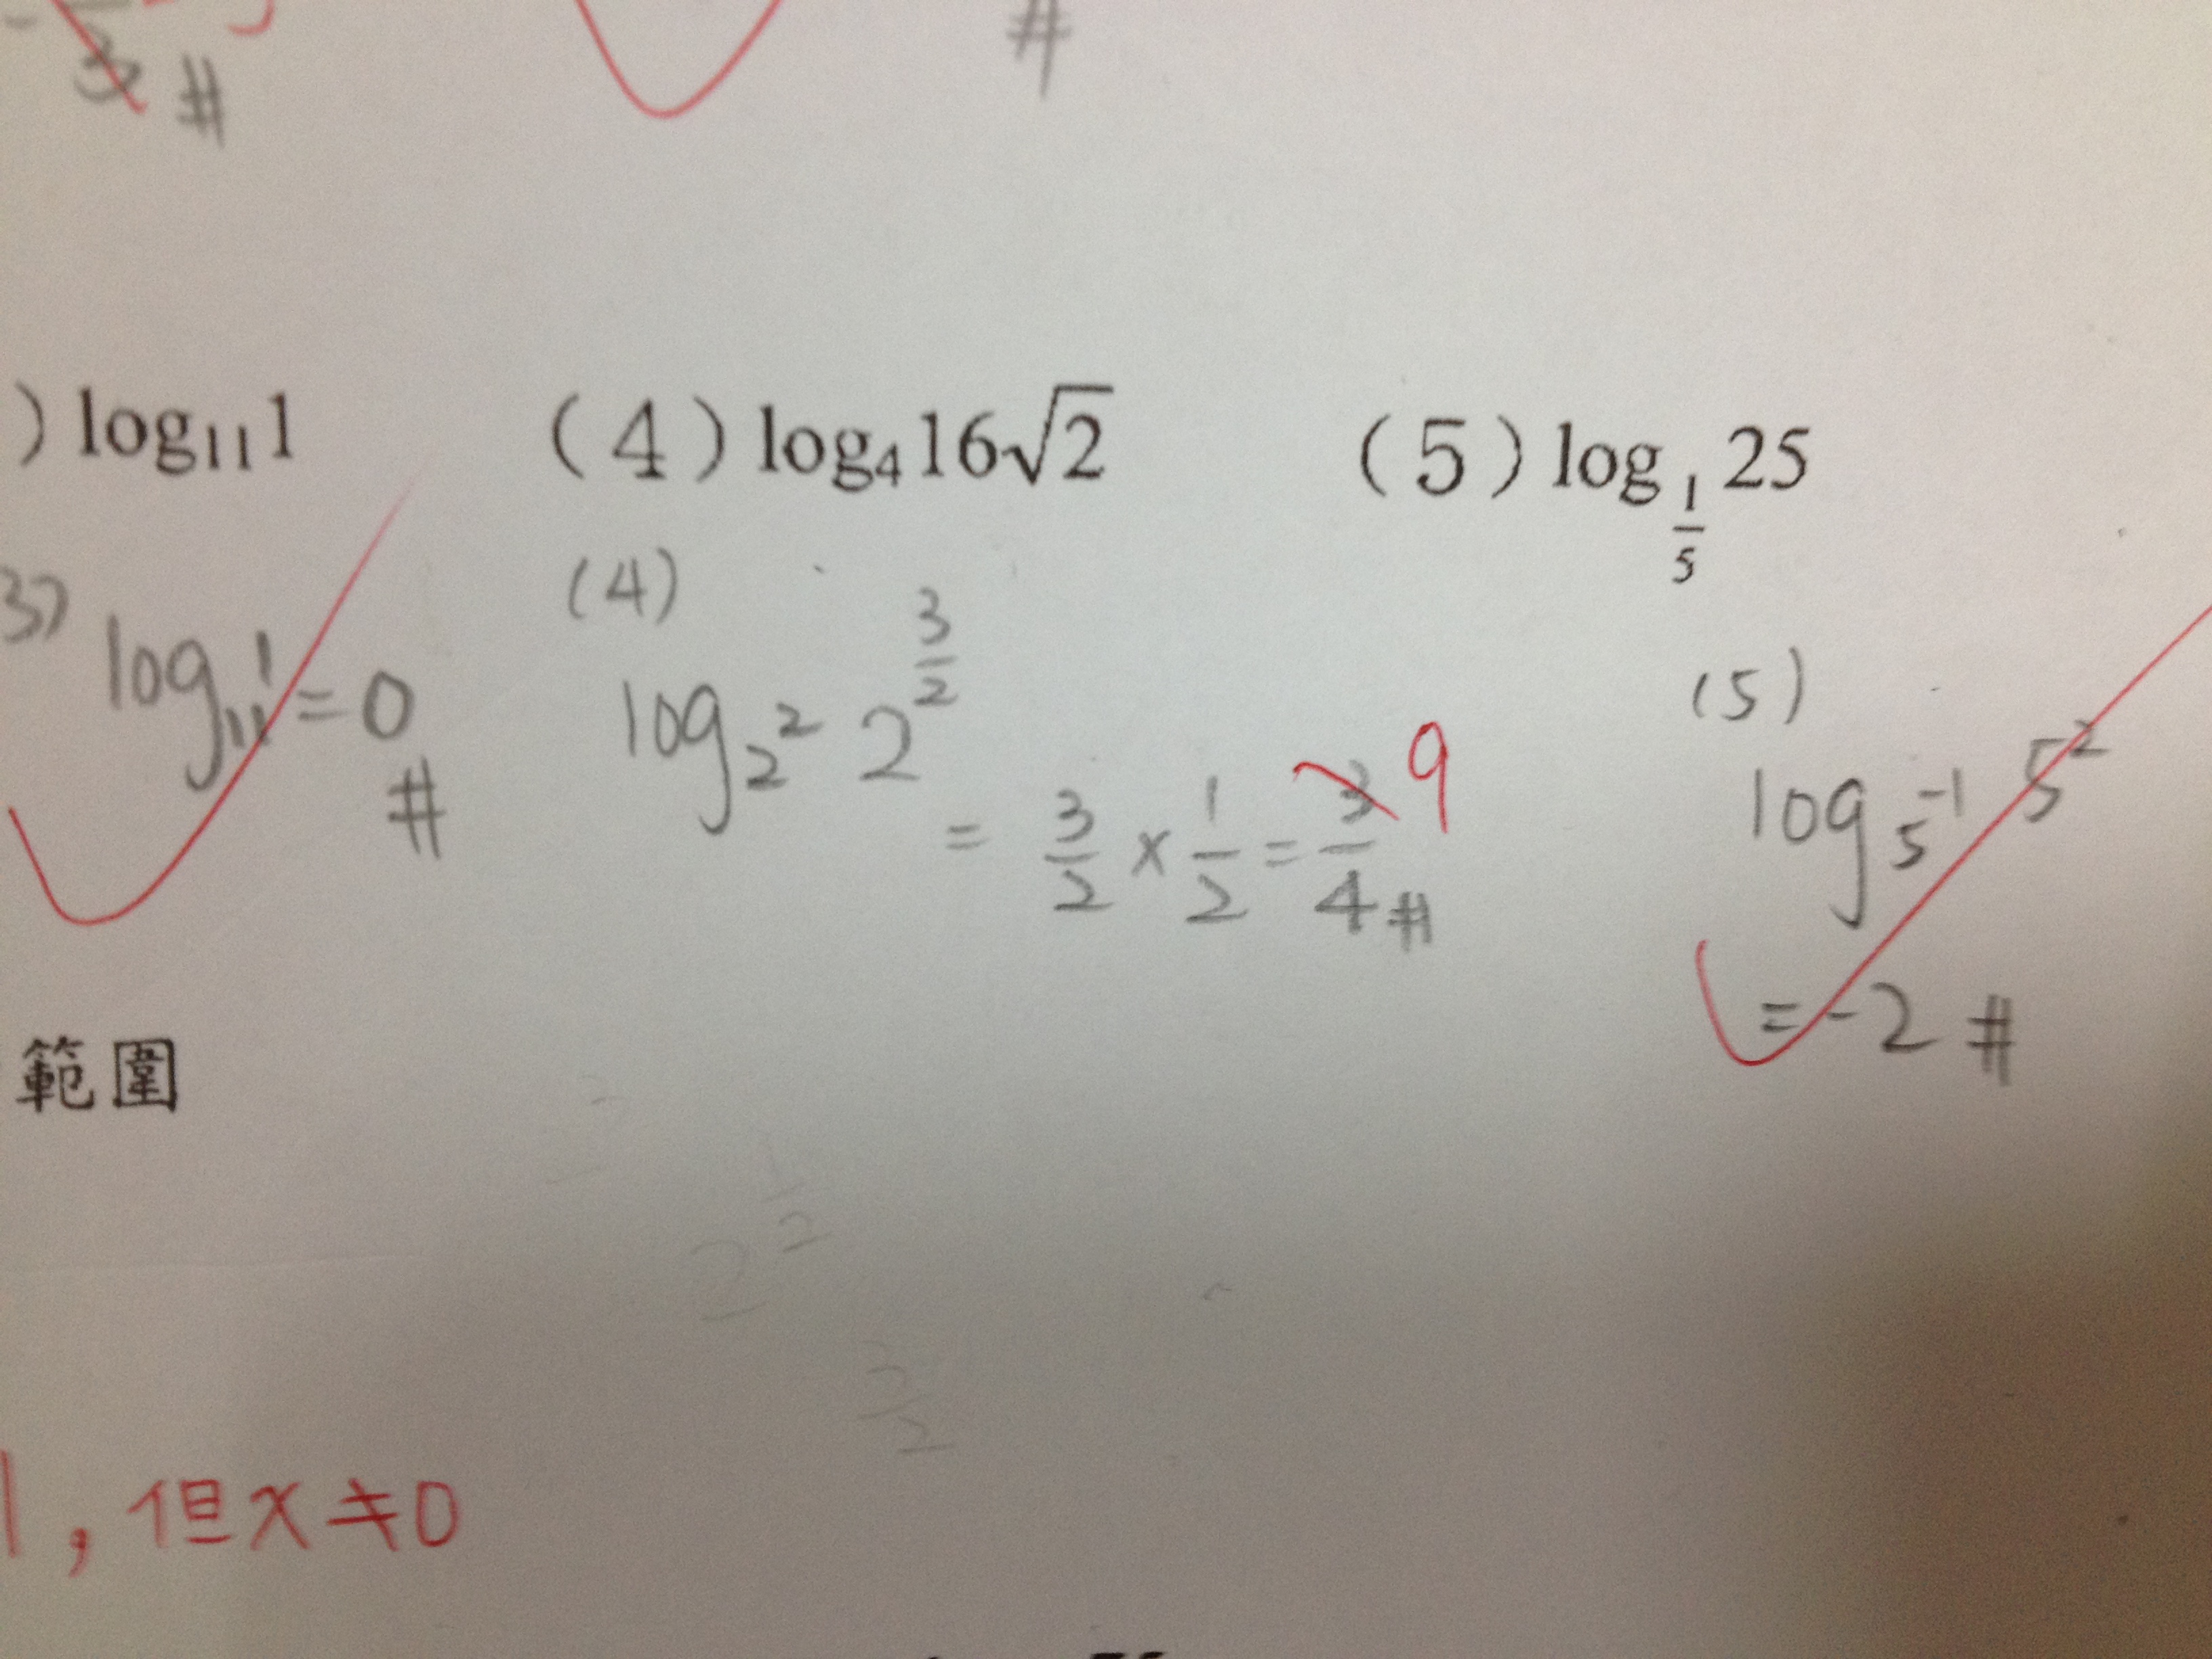 3 #
#
) log₁₁1 (4) log₄16√2 (5) log_{1/5}25
3) log₁₁1 = 0 #
(4) log_{2²} 2^{3/2} = 3/2 × 1/2 = 3/4 # 9
(5) log_{5⁻¹} 5² = -2 #
範圍
2^{1/2}
3/2
1，但x≠0